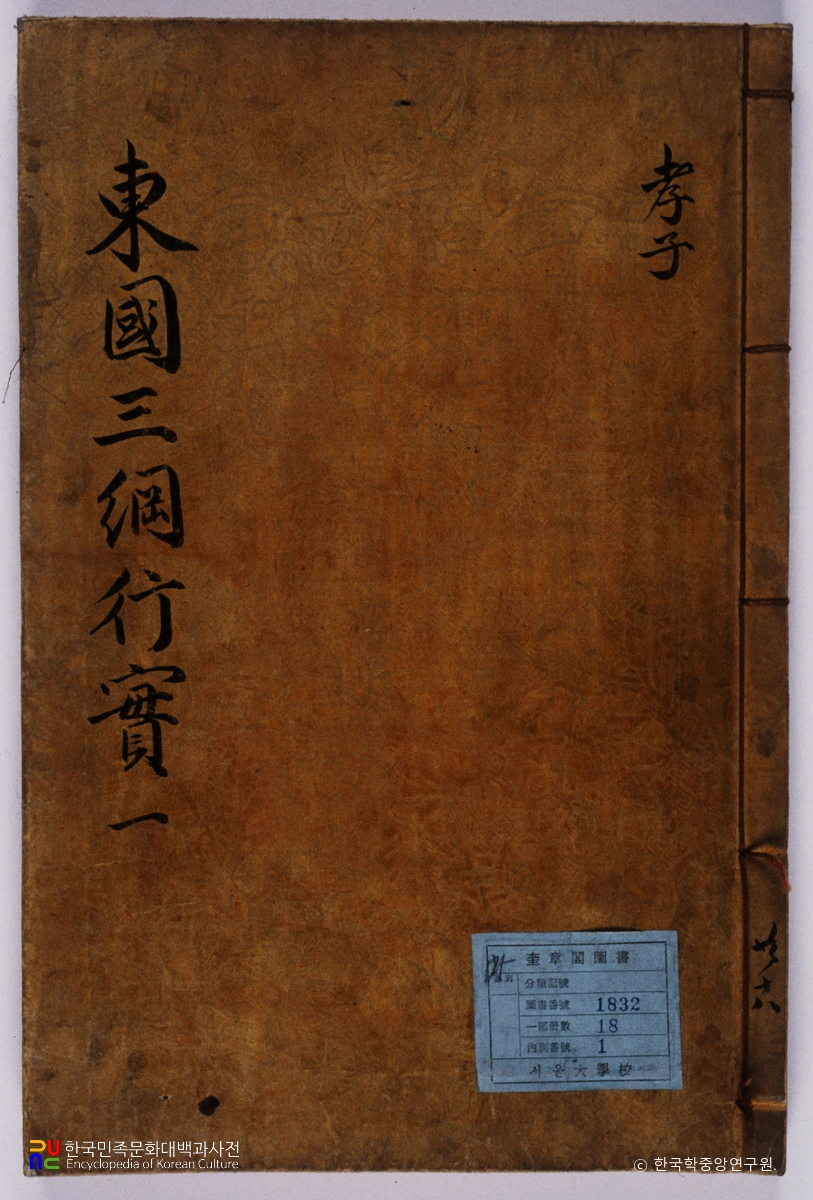 孝子
東國三綱行實 一
奎章閣圖書
分類記號
圖書番號 1832
一部冊數 18
內別番號 1
서울大學校
共十八
한국민족문화대백과사전
Encyclopedia of Korean Culture
© 한국학중앙연구원.